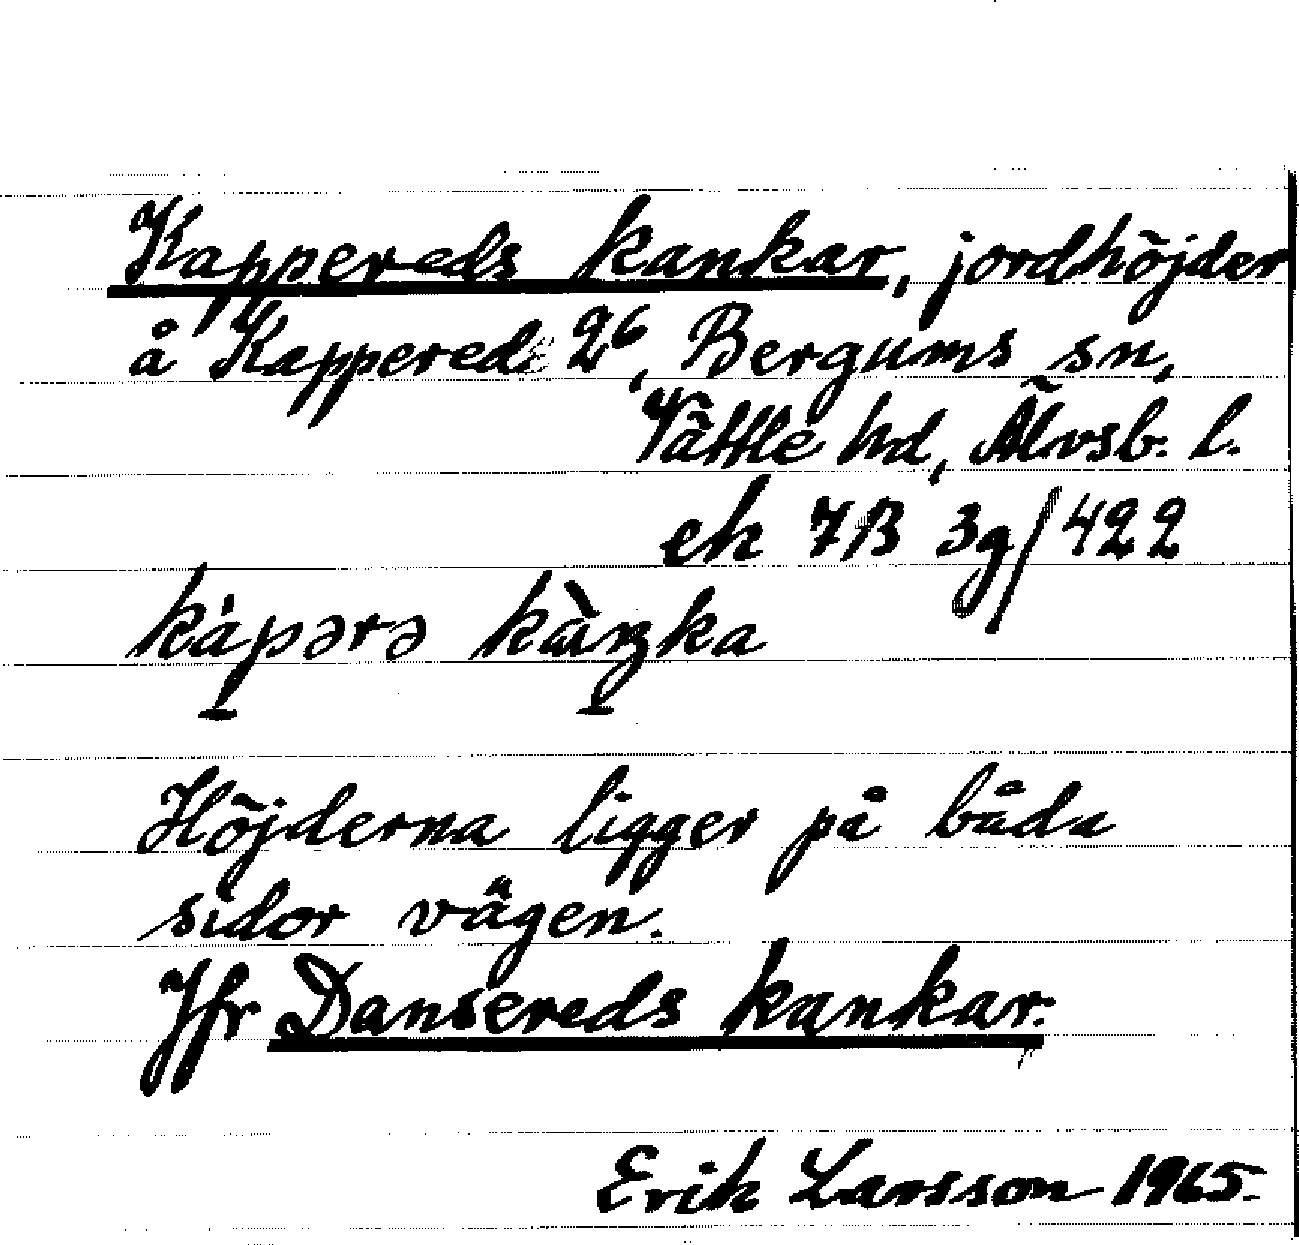 Kappereds kankar, jordhöjder
å Kappered 2⁶, Bergums sn,
Vättle hd, Älvsb. l.
ek 7B 3g/422
kàpərə kàŋka
Höjderna ligger på båda
sidor vägen.
Jfr Dansereds kankar.
Erik Larsson 1965.